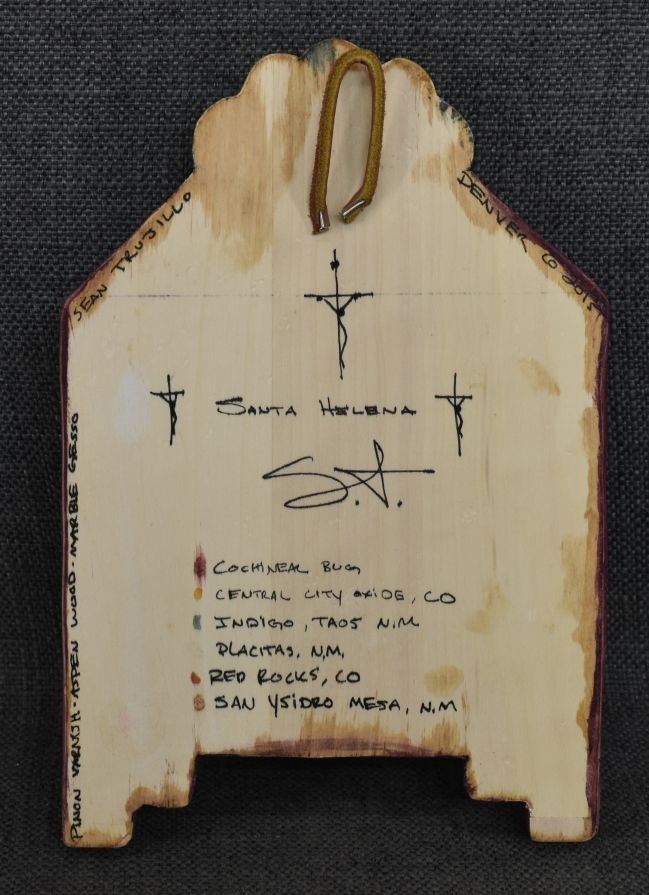 SEAN TRUJILLO
DENVER CO 2015
SANTA HELENA
S.T.
COCHINEAL BUG
CENTRAL CITY OXIDE, CO
INDIGO, TAOS N.M
PLACITAS, N.M.
RED ROCKS, CO
SAN YSIDRO MESA, N.M
PINON VARNISH - ASPEN WOOD - MARBLE GESSO